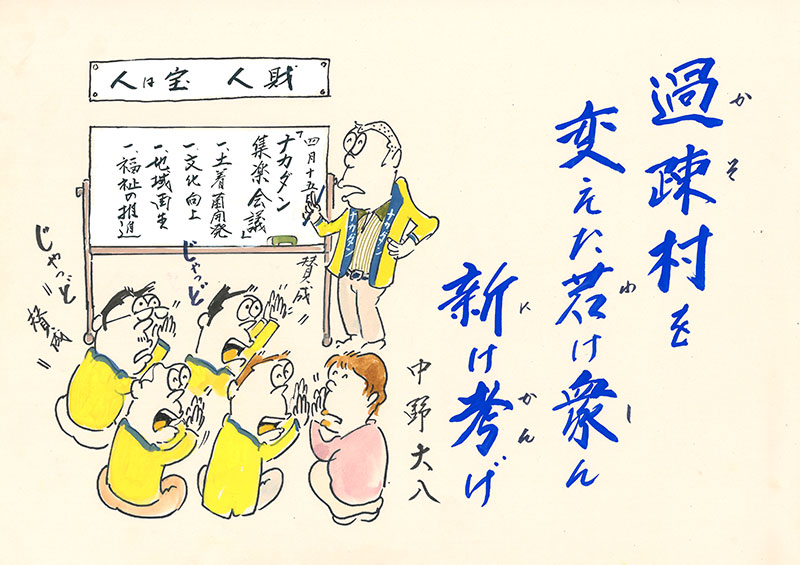 過疎村を
かそ
変えた若け衆ん
わ し
新け考げ
に かん
中野大八
人は宝 人財
四月十五日
「ナカダン
集楽会議」
一、土着菌開発
一、文化向上
一、地域再生
一、福祉の推進
ナカダン
ナカダン
賛成
じゃっど
じゃっど
賛成